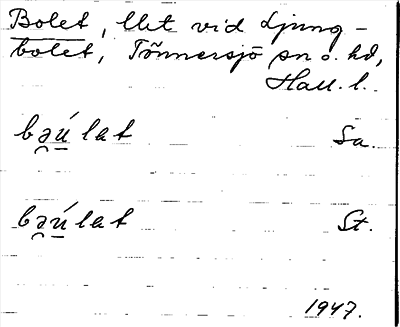 Bolet, llet vid Ljung-
bolet, Tönnersjö sn o. hd,
Hall. l.
bə̯ú̱lat Sa.
bə̯ú̱lat St.
1947.